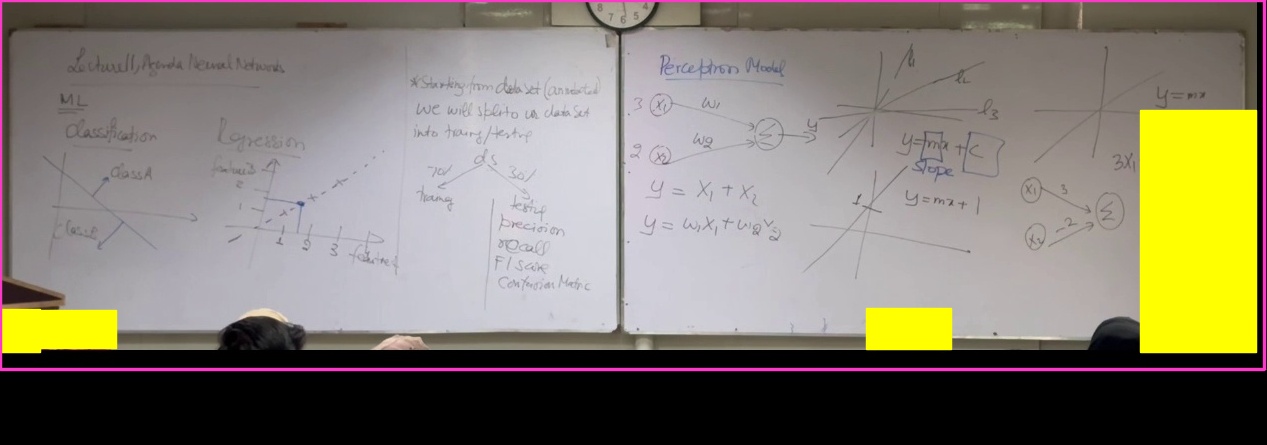 Lecture 11, Agenda Neural Networks
ML
Classification
Class A
Regression
2
1
1 2 3
*Starting from dataset (annotated)
we will split to us dataset
into traing/testing
ds
70% 30%
testing
precision
recall
F1 score
Confusion Matric
Perceptron Model
3 X1 w1
Σ y
2 X2 w2
y = X1 + X2
y = w1X1 + w2
l1
l2
l3
y = mx + C
Slope
1
y = mx + 1
y = mx
3X1
X1 3
Σ
X2 -2
7 6 5 4